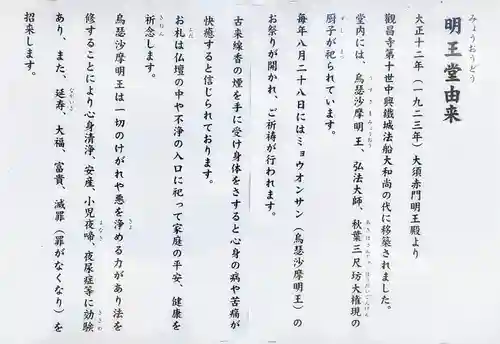 みょうおうどう
明王堂由来
大正十二年（一九二三年）大須赤門明王殿より
観昌寺第十世中興鐵城法船大和尚の代に移築されました。
堂内には、烏瑟沙摩明王、弘法大師、秋葉三尺坊大権現の
厨子が祀られています。
毎年八月二十八日にはミョウオンサン（烏瑟沙摩明王）の
お祭りが開かれ、ご祈祷が行われます。
古来線香の煙を手に受け身体をさすると心身の病や苦痛が
快癒すると信じられております。
お札は仏壇の中や不浄の入口に祀って家庭の平安、健康を
祈念します。
烏瑟沙摩明王は一切のけがれや悪を浄める力があり法を
修することにより心身清浄、安産、小児夜啼、夜尿症等に効験
あり、また、延寿、大福、富貴、滅罪（罪がなくなり）を
招来します。